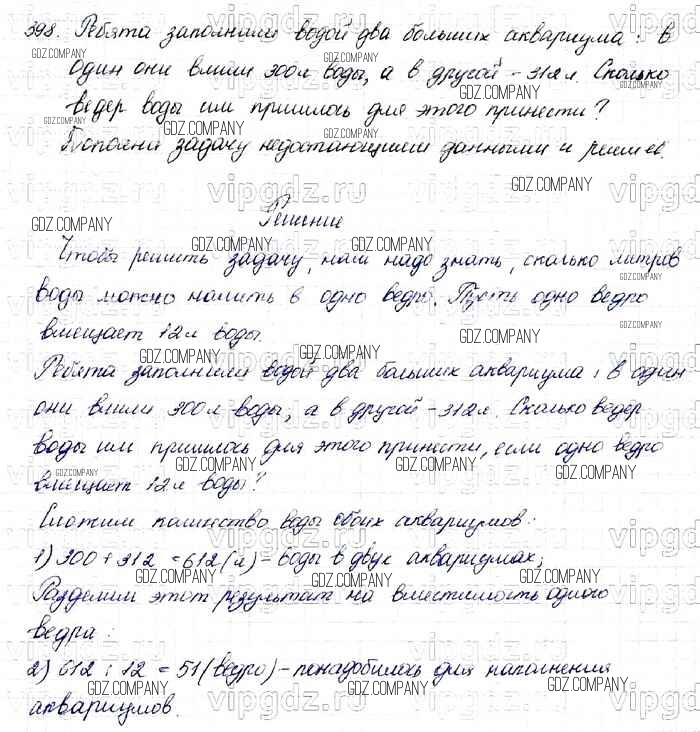 398. Ребята заполнили водой два больших аквариума: в
один они влили 300л воды, а в другой - 312л. Сколько
ведер воды им пришлось для этого принести?
Дополни задачу недостающими данными и реши её.
Решение
Чтобы решить задачу, нам надо знать, сколько литров
воды можно налить в одно ведро. Пусть одно ведро
вмещает 12л воды.
Ребята заполнили водой два больших аквариума: в один
они влили 300л воды, а в другой - 312л. Сколько ведер
воды им пришлось для этого принести, если одно ведро
вмещает 12л воды?
Сложим количество воды обоих аквариумов:
1) 300 + 312 = 612 (л) - воды в двух аквариумах;
Разделим этот результат на вместимость одного
ведра:
2) 612 : 12 = 51 (ведро) - понадобилось для наполнения
аквариумов.
GDZ.COMPANY
vipgdz.ru